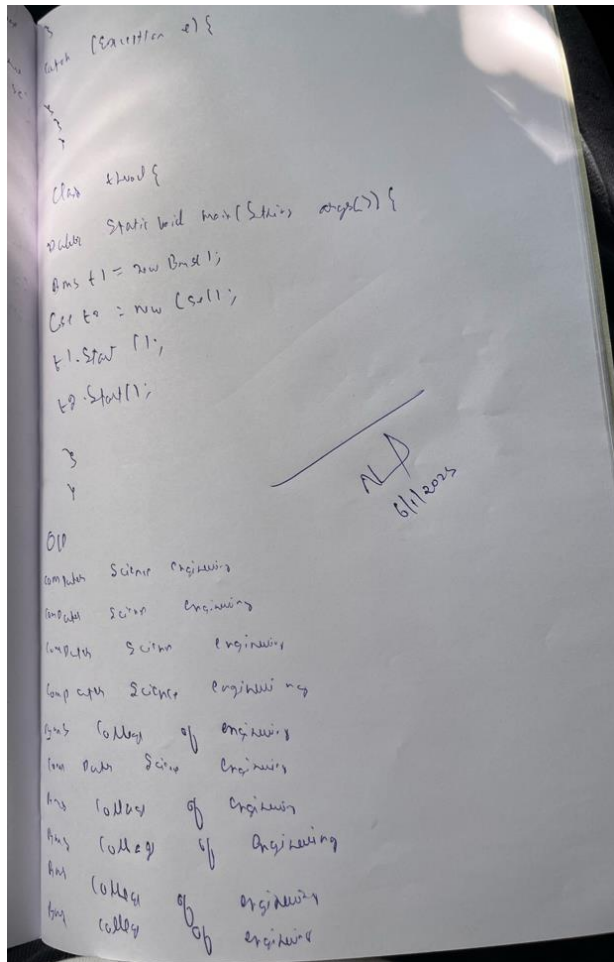 }
catch (Exception e) {
}
}
}
class thread {
public static void main(String args[]) {
Bms t1 = new Bms();
Cse t2 = new Cse();
t1.Start();
t2.Start();
}
}
O/P
Computer Science Engineering
Computer Science Engineering
Computer Science Engineering
Computer Science Engineering
Bms College of Engineering
Computer Science Engineering
Bms College of Engineering
Bms College of Engineering
Bms College of Engineering
Bms College of Engineering
6/1/2025